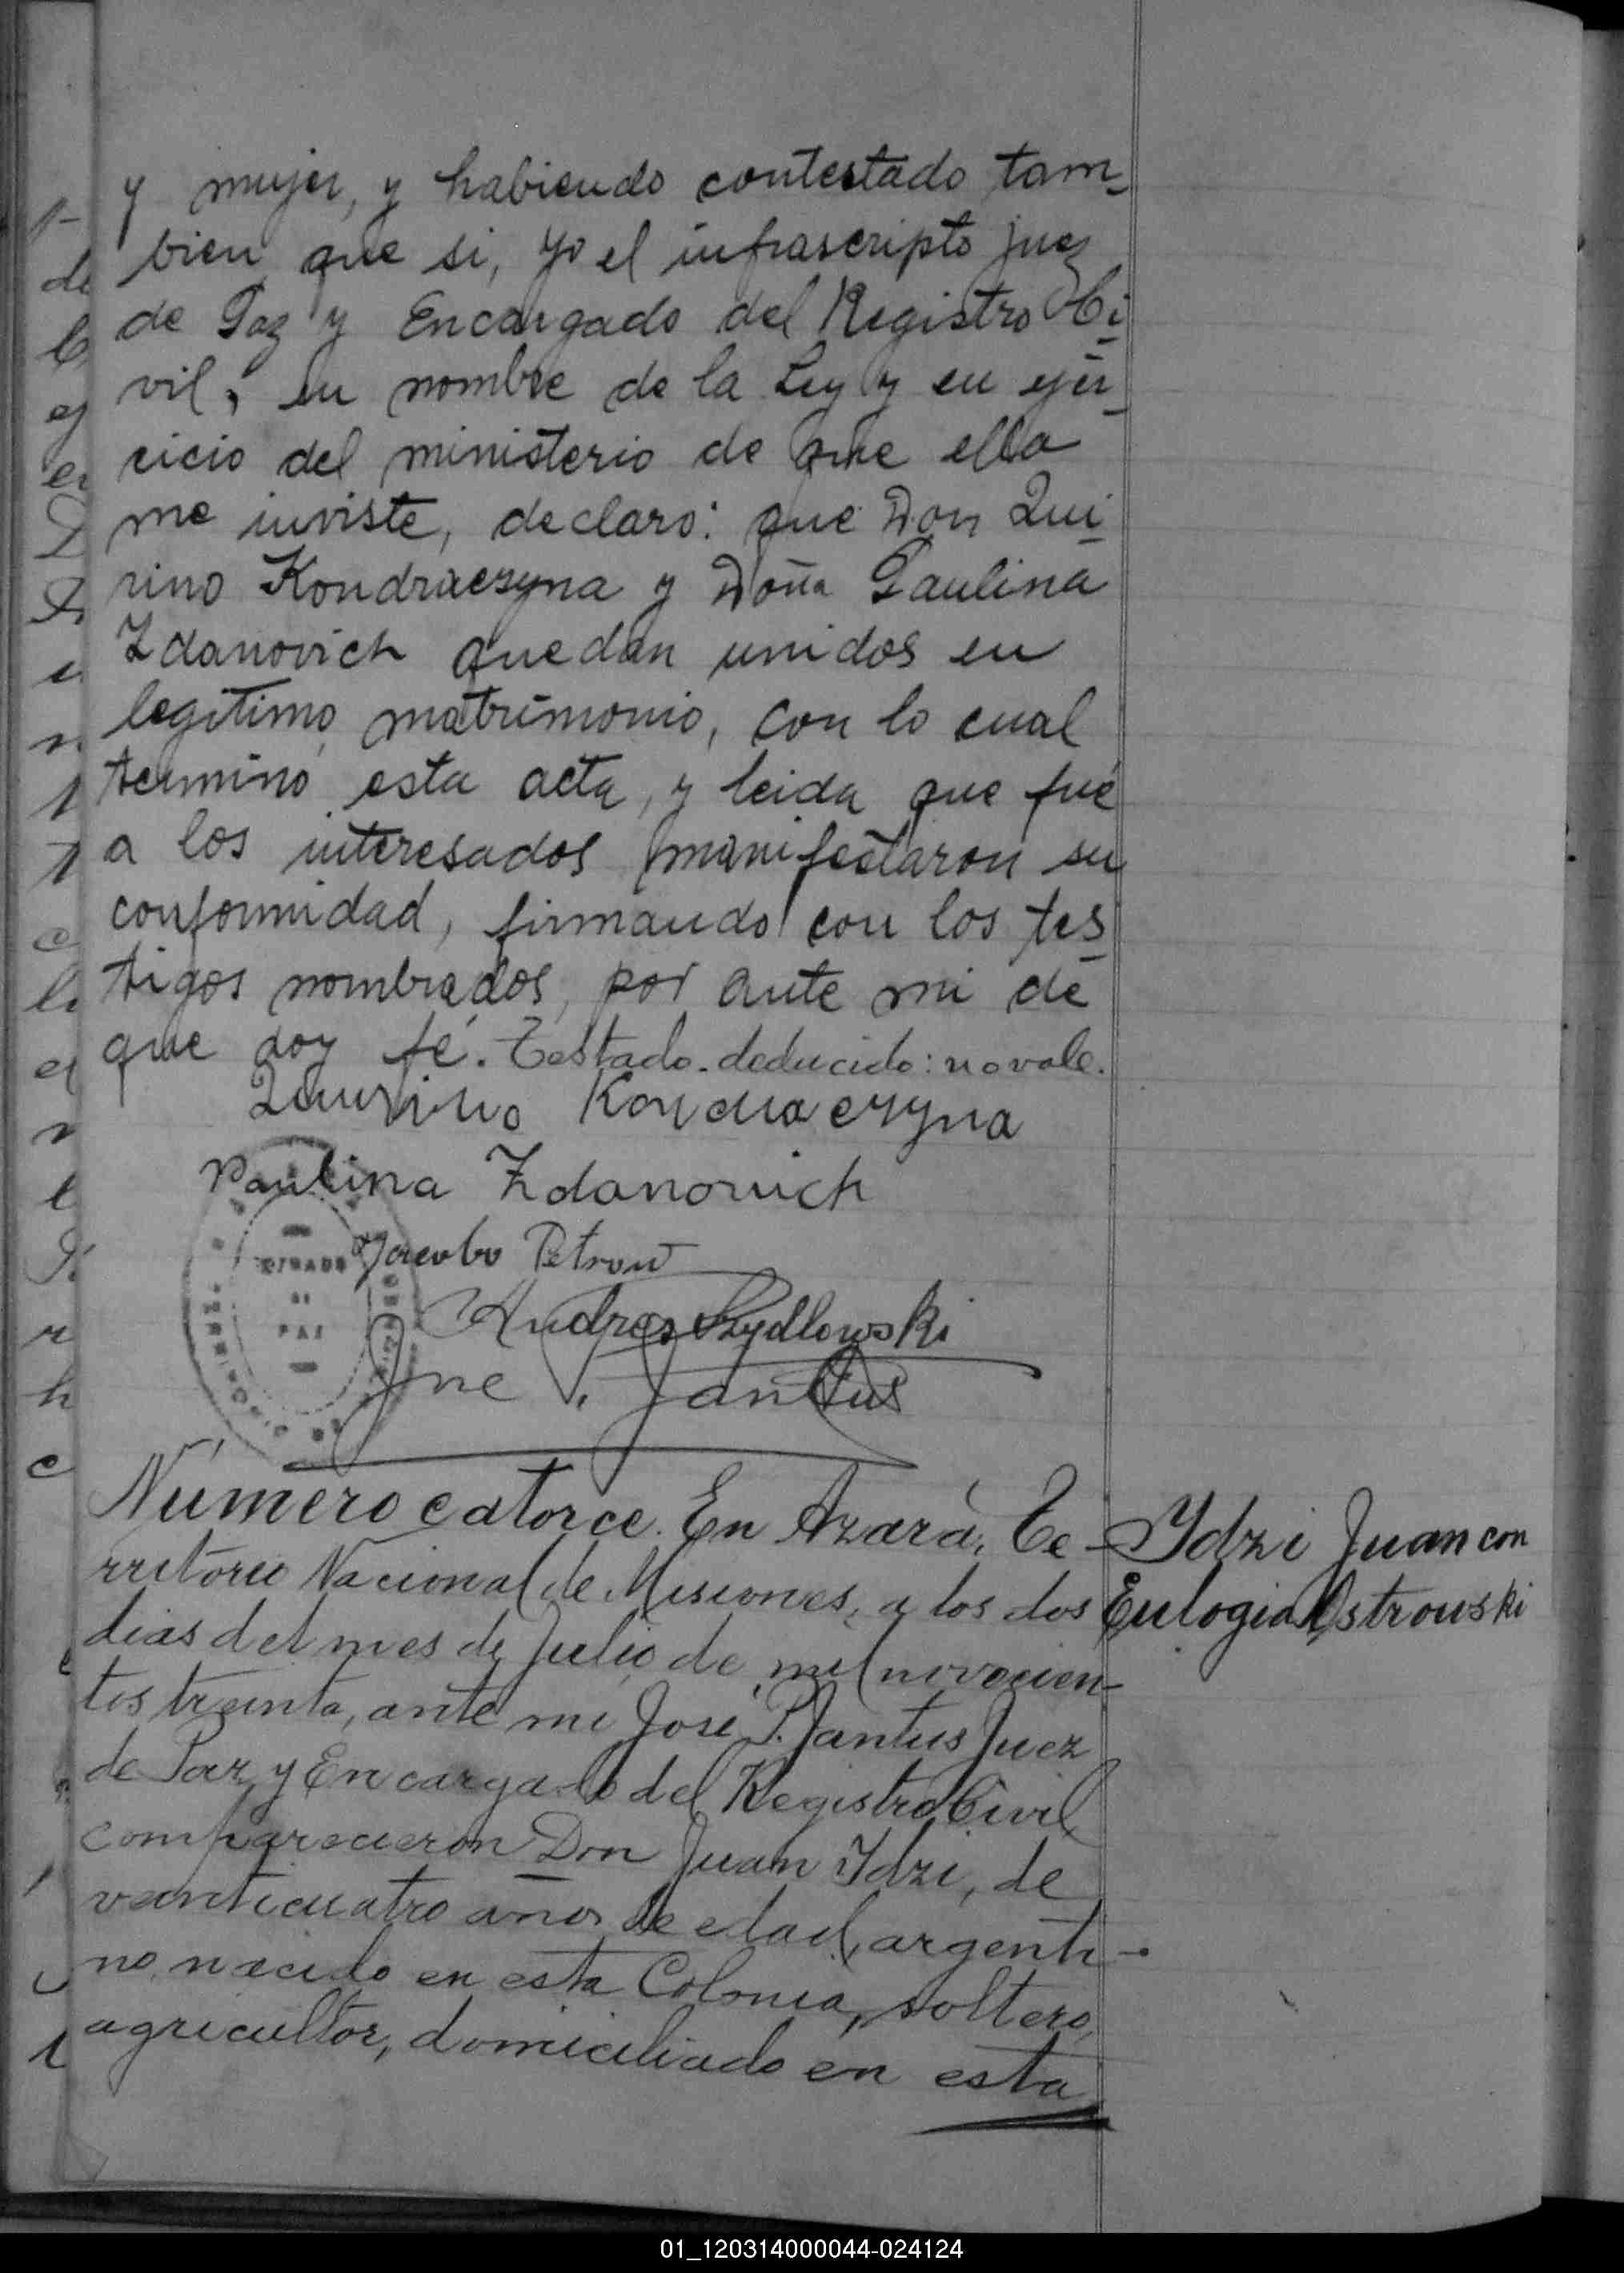 y mujer, y habiendo contestado tam-
bien que si, yo el infrascripto juez
de Paz y Encargado del Registro Ci-
vil, en nombre de la Ley y en ejer-
cicio del ministerio de que ella
me inviste, declaro: que Don Qui-
rino Kondraczyna y Doña Paulina
Zdanovich quedan unidos en
legitimo matrimonio, con lo cual
terminó esta acta, y leida que fué
a los interesados manifestaron su
conformidad, firmando con los tes-
tigos nombrados, por ante mi de
que doy fé. Testado-deducido: no vale.
Quirino Kondraczyna
Paulina Zdanovich
Jacobo Petrow
Andres Szydlowski
JUZGADO
DE
PAZ
Jose P. Jantus
Número catorce. En Azara, Te-
Ydzi Juan con
rritorio Nacional de Misiones, a los dos
Eulogia Ostrowski
dias del mes de Julio de mil novecien-
tos treinta, ante mi José P. Jantus Juez
de Paz y Encargado del Registro Civil,
comparecieron Don Juan Ydzi, de
veinticuatro años de edad, argenti-
no, nacido en esta Colonia, soltero,
agricultor, domiciliado en esta
01_120314000044-024124